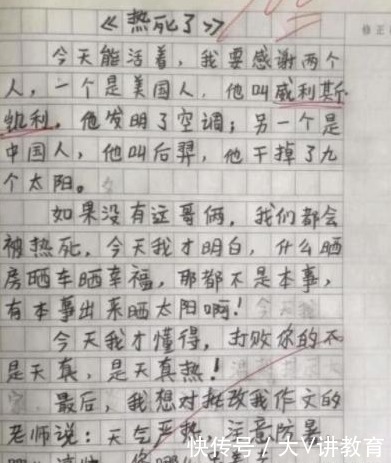 《热死了》
今天能活着，我要感谢两个
人，一个是美国人，他叫威利斯
凯利，他发明了空调；另一个是
中国人，他叫后羿，他干掉了九
个太阳。
如果没有这哥俩，我们都会
被热死，今天我才明白，什么晒
房晒车晒幸福，那都不是本事，
有本事出来晒太阳啊！
今天我才懂得，打败你的不
是天真，是天真热！
最后，我想对批改我作文的
老师说：天气严热，注意防暑
快传号／大V讲教育